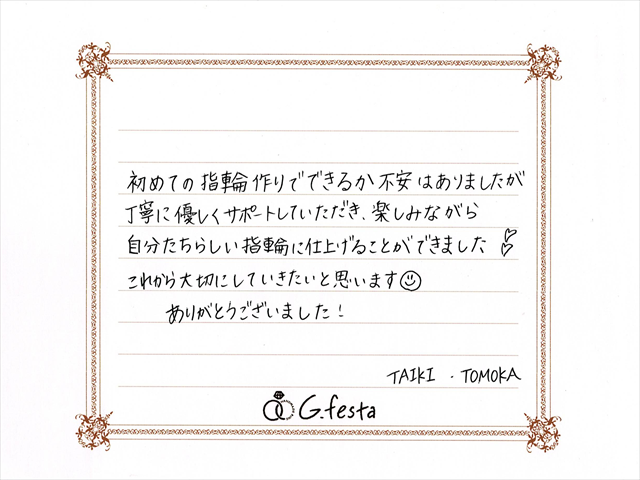 初めての指輪作りでできるか不安はありましたが
丁寧に優しくサポートしていただき、楽しみながら
自分たちらしい指輪に仕上げることができました♡
これから大切にしていきたいと思います☺
ありがとうございました！
TAIKI . TOMOKA
G.festa